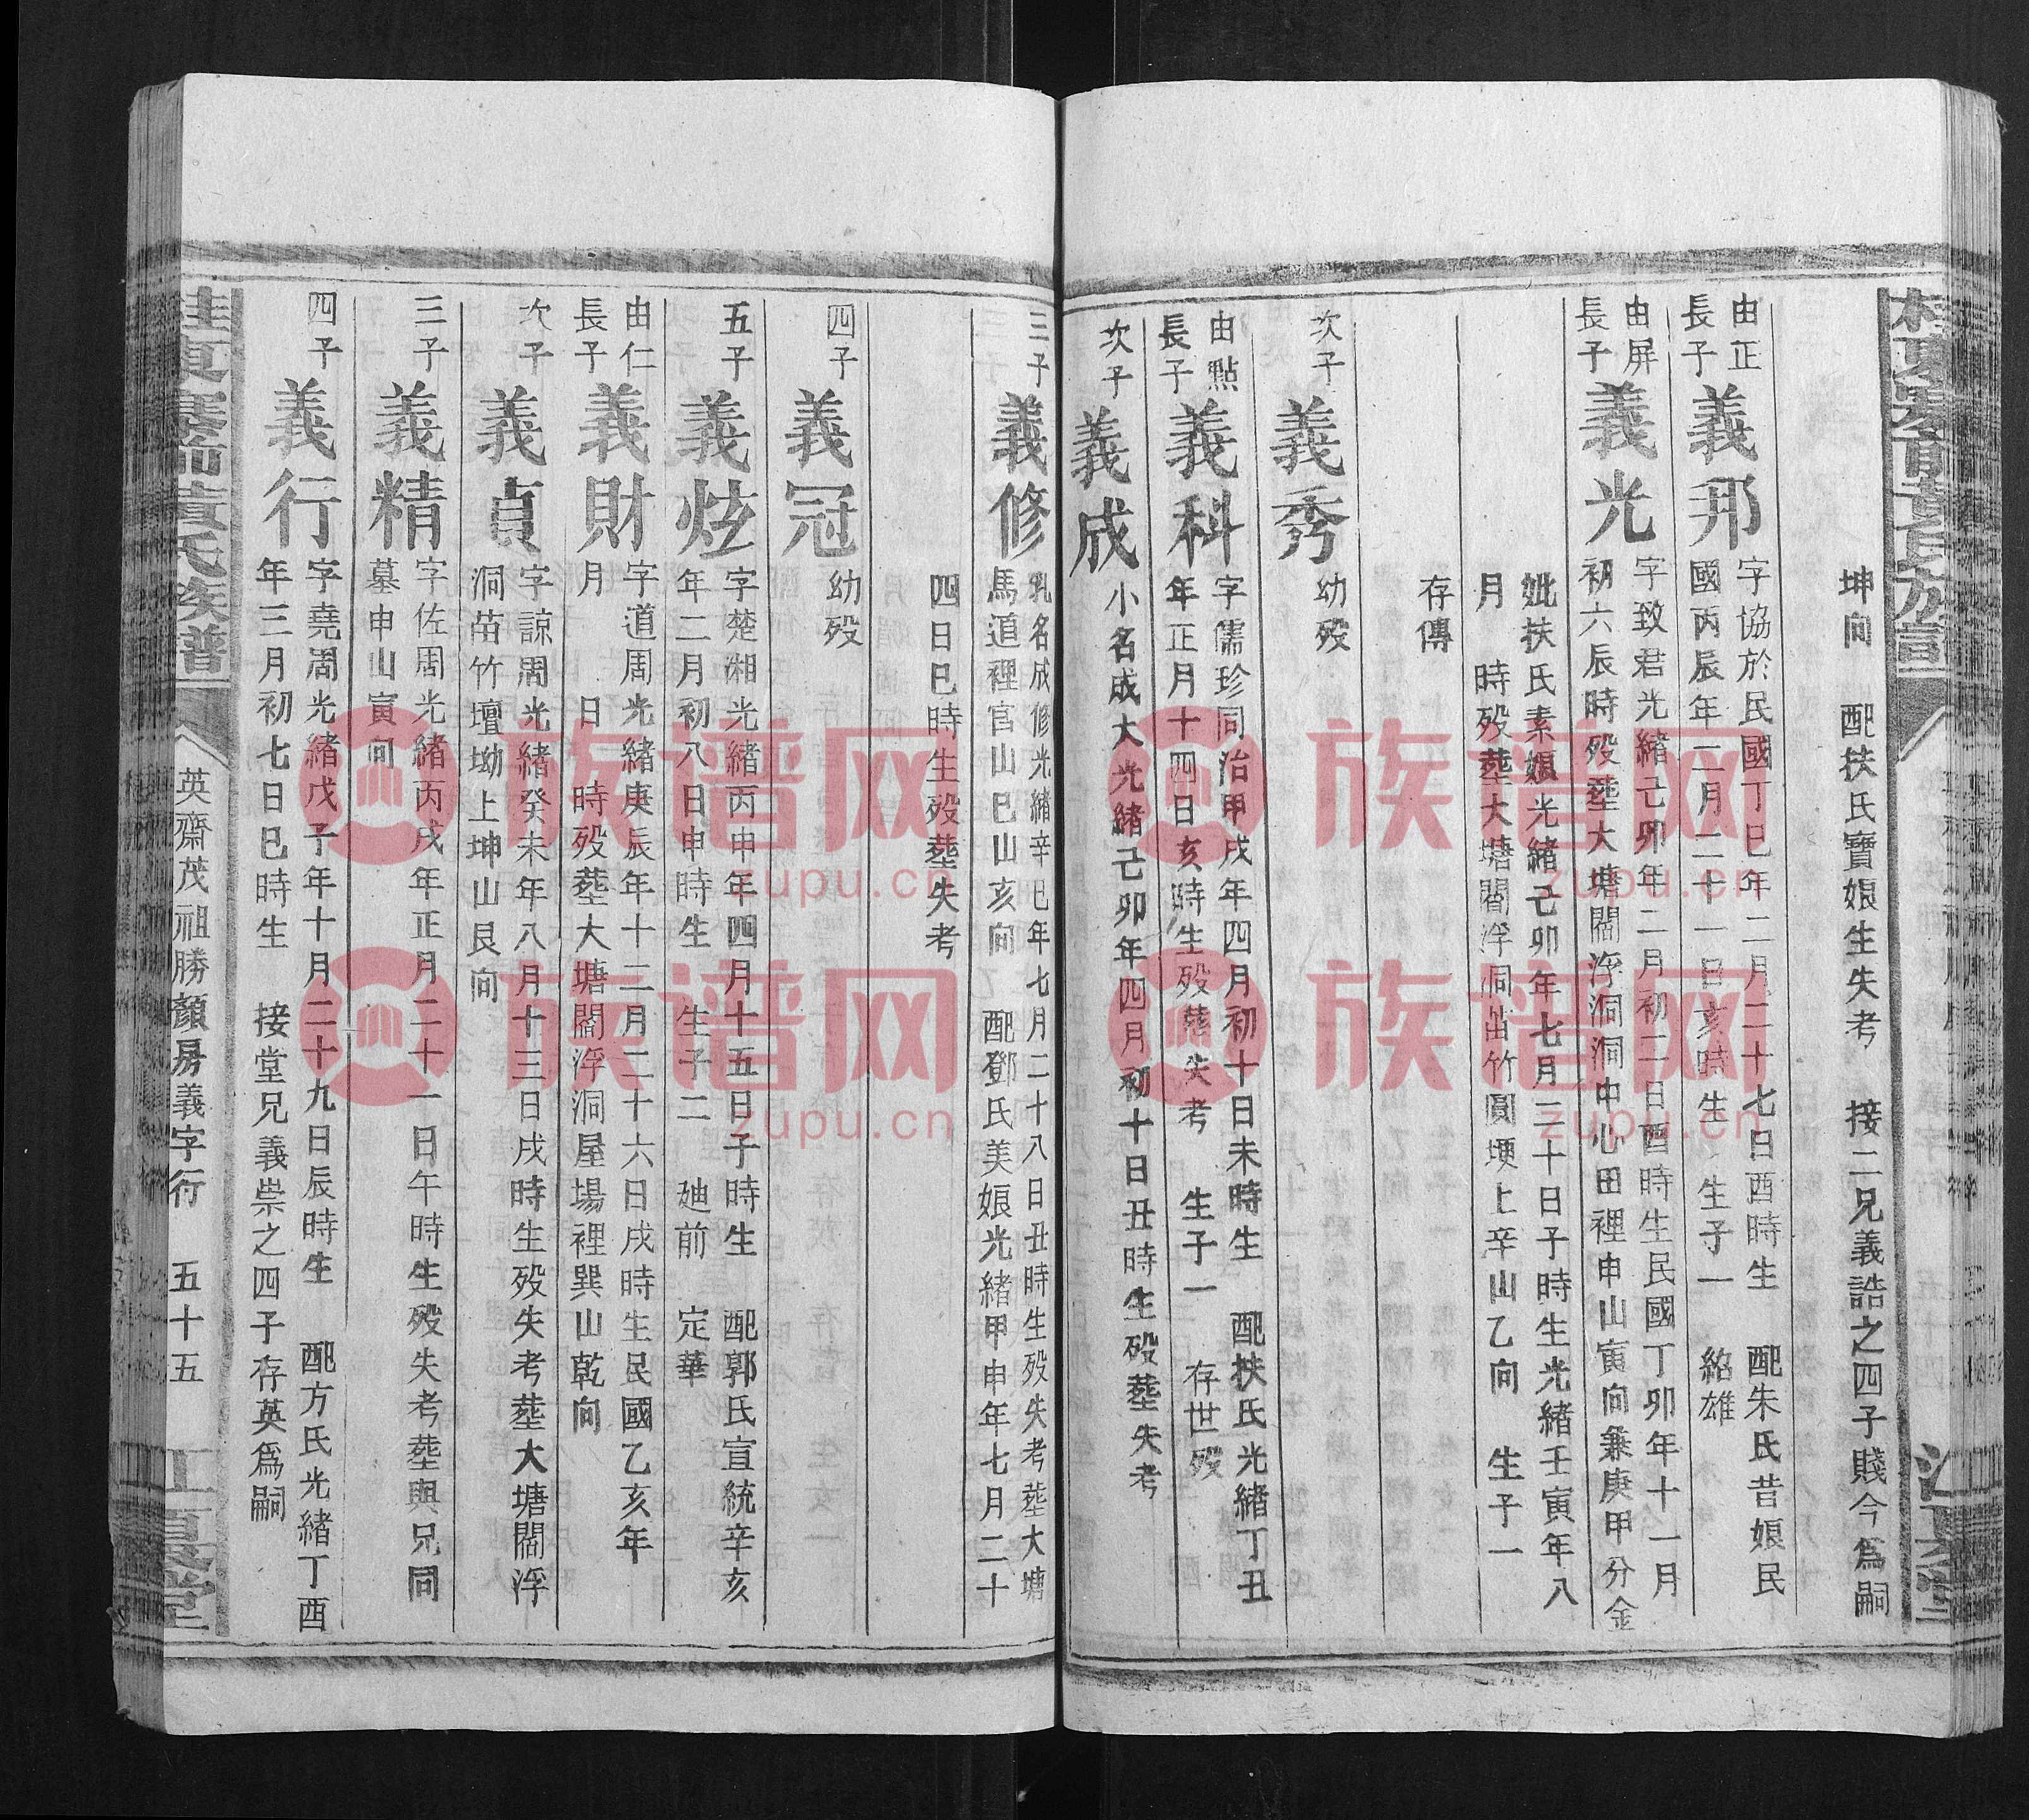 坤向　配扶氏寶娘生失考　接二兄義誥之四子賤今爲嗣
由正
長子
義邦
字協於民國丁巳年二月二十七日酉時生　配朱氏昔娘民
國丙辰年二月二十一日亥時生　生子一　紹雄
由屏
長子
義光
字致君光緒己卯年二月初二日酉時生民國丁卯年十一月
初六辰時殁塟大塘閣浮洞洞中心田裡申山寅向兼庚甲分金
妣扶氏素娘光緒己卯年七月二十日子時生光緒壬寅年八
月　時殁塟大塘閣浮洞苗竹圓塝上辛山乙向　生子一
存傳
次子
義秀
幼殁
由點
長子
義科
字儒珍同治甲戌年四月初十日未時生　配扶氏光緒丁丑
年正月十四日亥時生殁塟失考　生子一　存世殁
次子
義成
小名成大光緒己卯年四月初十日丑時生殁塟失考
三子
義修
乳名成修光緒辛巳年七月二十八日丑時生殁失考塟大塘
馬道裡官山巳山亥向　配鄧氏美娘光緒甲申年七月二十
四日巳時生殁塟失考
四子
義冠
幼殁
五子
義炫
字楚湘光緒丙申年四月十五日子時生　配郭氏宣統辛亥
年二月初八日申時生　生子二　廸前　定華
由仁
長子
義財
字道周光緒庚辰年十二月二十六日戌時生民國乙亥年
月　日　時殁塟大塘閣浮洞屋場裡巽山乾向
次子
義貞
字諒周光緒癸未年八月十三日戌時生殁失考塟大塘閣浮
洞苗竹壇坳上坤山艮向
三子
義精
字佐周光緒丙戌年正月二十一日午時生殁失考塟與兄同
墓申山寅向
四子
義行
字堯周光緒戊子年十月二十九日辰時生　配方氏光緒丁酉
年三月初七日巳時生　接堂兄義崇之四子存英爲嗣
桂東寨前黃氏族譜
英齋茂祖勝顏房義字行　五十五
江夏堂
族谱网
zupu.cn
族谱网
zupu.cn
族谱网
zupu.cn
族谱网
zupu.cn